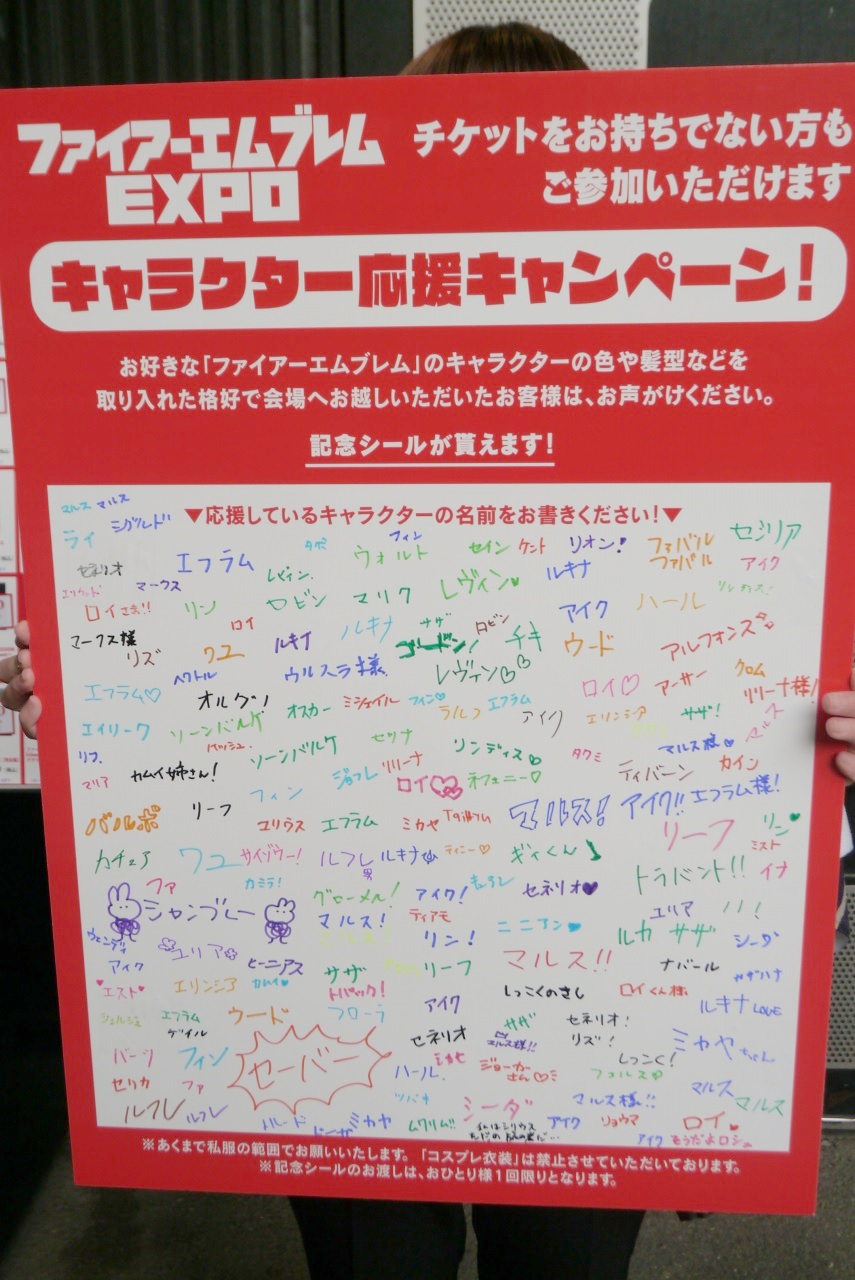 ファイアーエムブレム
EXPO
チケットをお持ちでない方も
ご参加いただけます
キャラクター応援キャンペーン!
お好きな「ファイアーエムブレム」のキャラクターの色や髪型などを
取り入れた格好で会場へお越しいただいたお客様は、お声がけください。
記念シールが貰えます!
▼応援しているキャラクターの名前をお書きください!▼
マルス マルス
シグルド
ライ
フィン
セシリア
セネリオ
エフラム
ウォルト
セイン ケント リオン!
ファバル
ファバル
アイク
マークス
レヴィン
ルキナ
ロイさま!!
リン
ロビン
マリク
レヴィン♥
アイク
ハール
ロイ
ルキナ
ルキナ
サザ
ロビン
ゴードン!
チキ
ウード
アルフォンス
マークス様
リズ
ワユ
ヘクトル
ウルスラ様
レヴァン♡♡
エフラム♡
オルグ!
オスカー
ミシェイル
フィン♡
ラルフ
エフラム
ロイ♡
アーサー
クロム
リリーナ様!
エイリーク
ソーンバルケ
アイク
エリンシア
サザ!
マルス
リフ
ソーンバルケ
セツナ
リンディス♡
タクミ
マルス様
マリア
カムイ姉さん!
フィン
ジョフレ
リリーナ
ロイ♡♡
ネフェニー♡
ティバーン
カイン
バルボ
リーフ
ユリウス
エフラム
ミカヤ
マルス!
アイク!!
エフラム様!
リーフ
リン♥
ミスト
カチュア
ワユ
サイゾウー!
ルフレ
ルキナ
ティニー♡
ギィくん♪
トラバント!!
イナ
ファ
カミラ!
グセーメル!
アイク!
セネリオ♥
シャンブレー
マルス!
ティアモ
ニニアン♥
ユリア
ユリア
リン!
ルカ
サザ
シーダ
アイク
ヒーニアス
サザ
リーフ
マルス!!
ナバール
カザハナ
♥エスト♥
エリンシア
カムイ♥
トパック!
アイク
しっこくのきし
ロイくん様
ルキナ LOVE
エフラム
ゲイル
ウード
フローラ
セネリオ
サザ
マルス様!!
セネリオ!
リズ!
しっこく!
ミカヤちゃん
バーツ
フィン
セーバー
ハール
ミカヤ
ジョーカーさん♡
フォルス
マルス
マルス
セリカ
ファ
ツバキ
シーダ
マルス様!!
ルフレ
ルフレ
ミカヤ
ムワリム!!
アイク
リョウマ
ロイ
アイク
そうだよロシェ
※あくまで私服の範囲でお願いいたします。「コスプレ衣装」は禁止させていただいております。
※記念シールのお渡しは、おひとり様1回限りとなります。